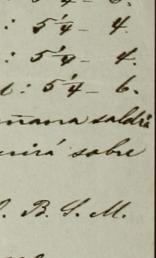 : 5¼ — 4.
: 5¼ — 4.
: 5¼ — 6.
ñana saldrá
nirá sobre
B. S. M.